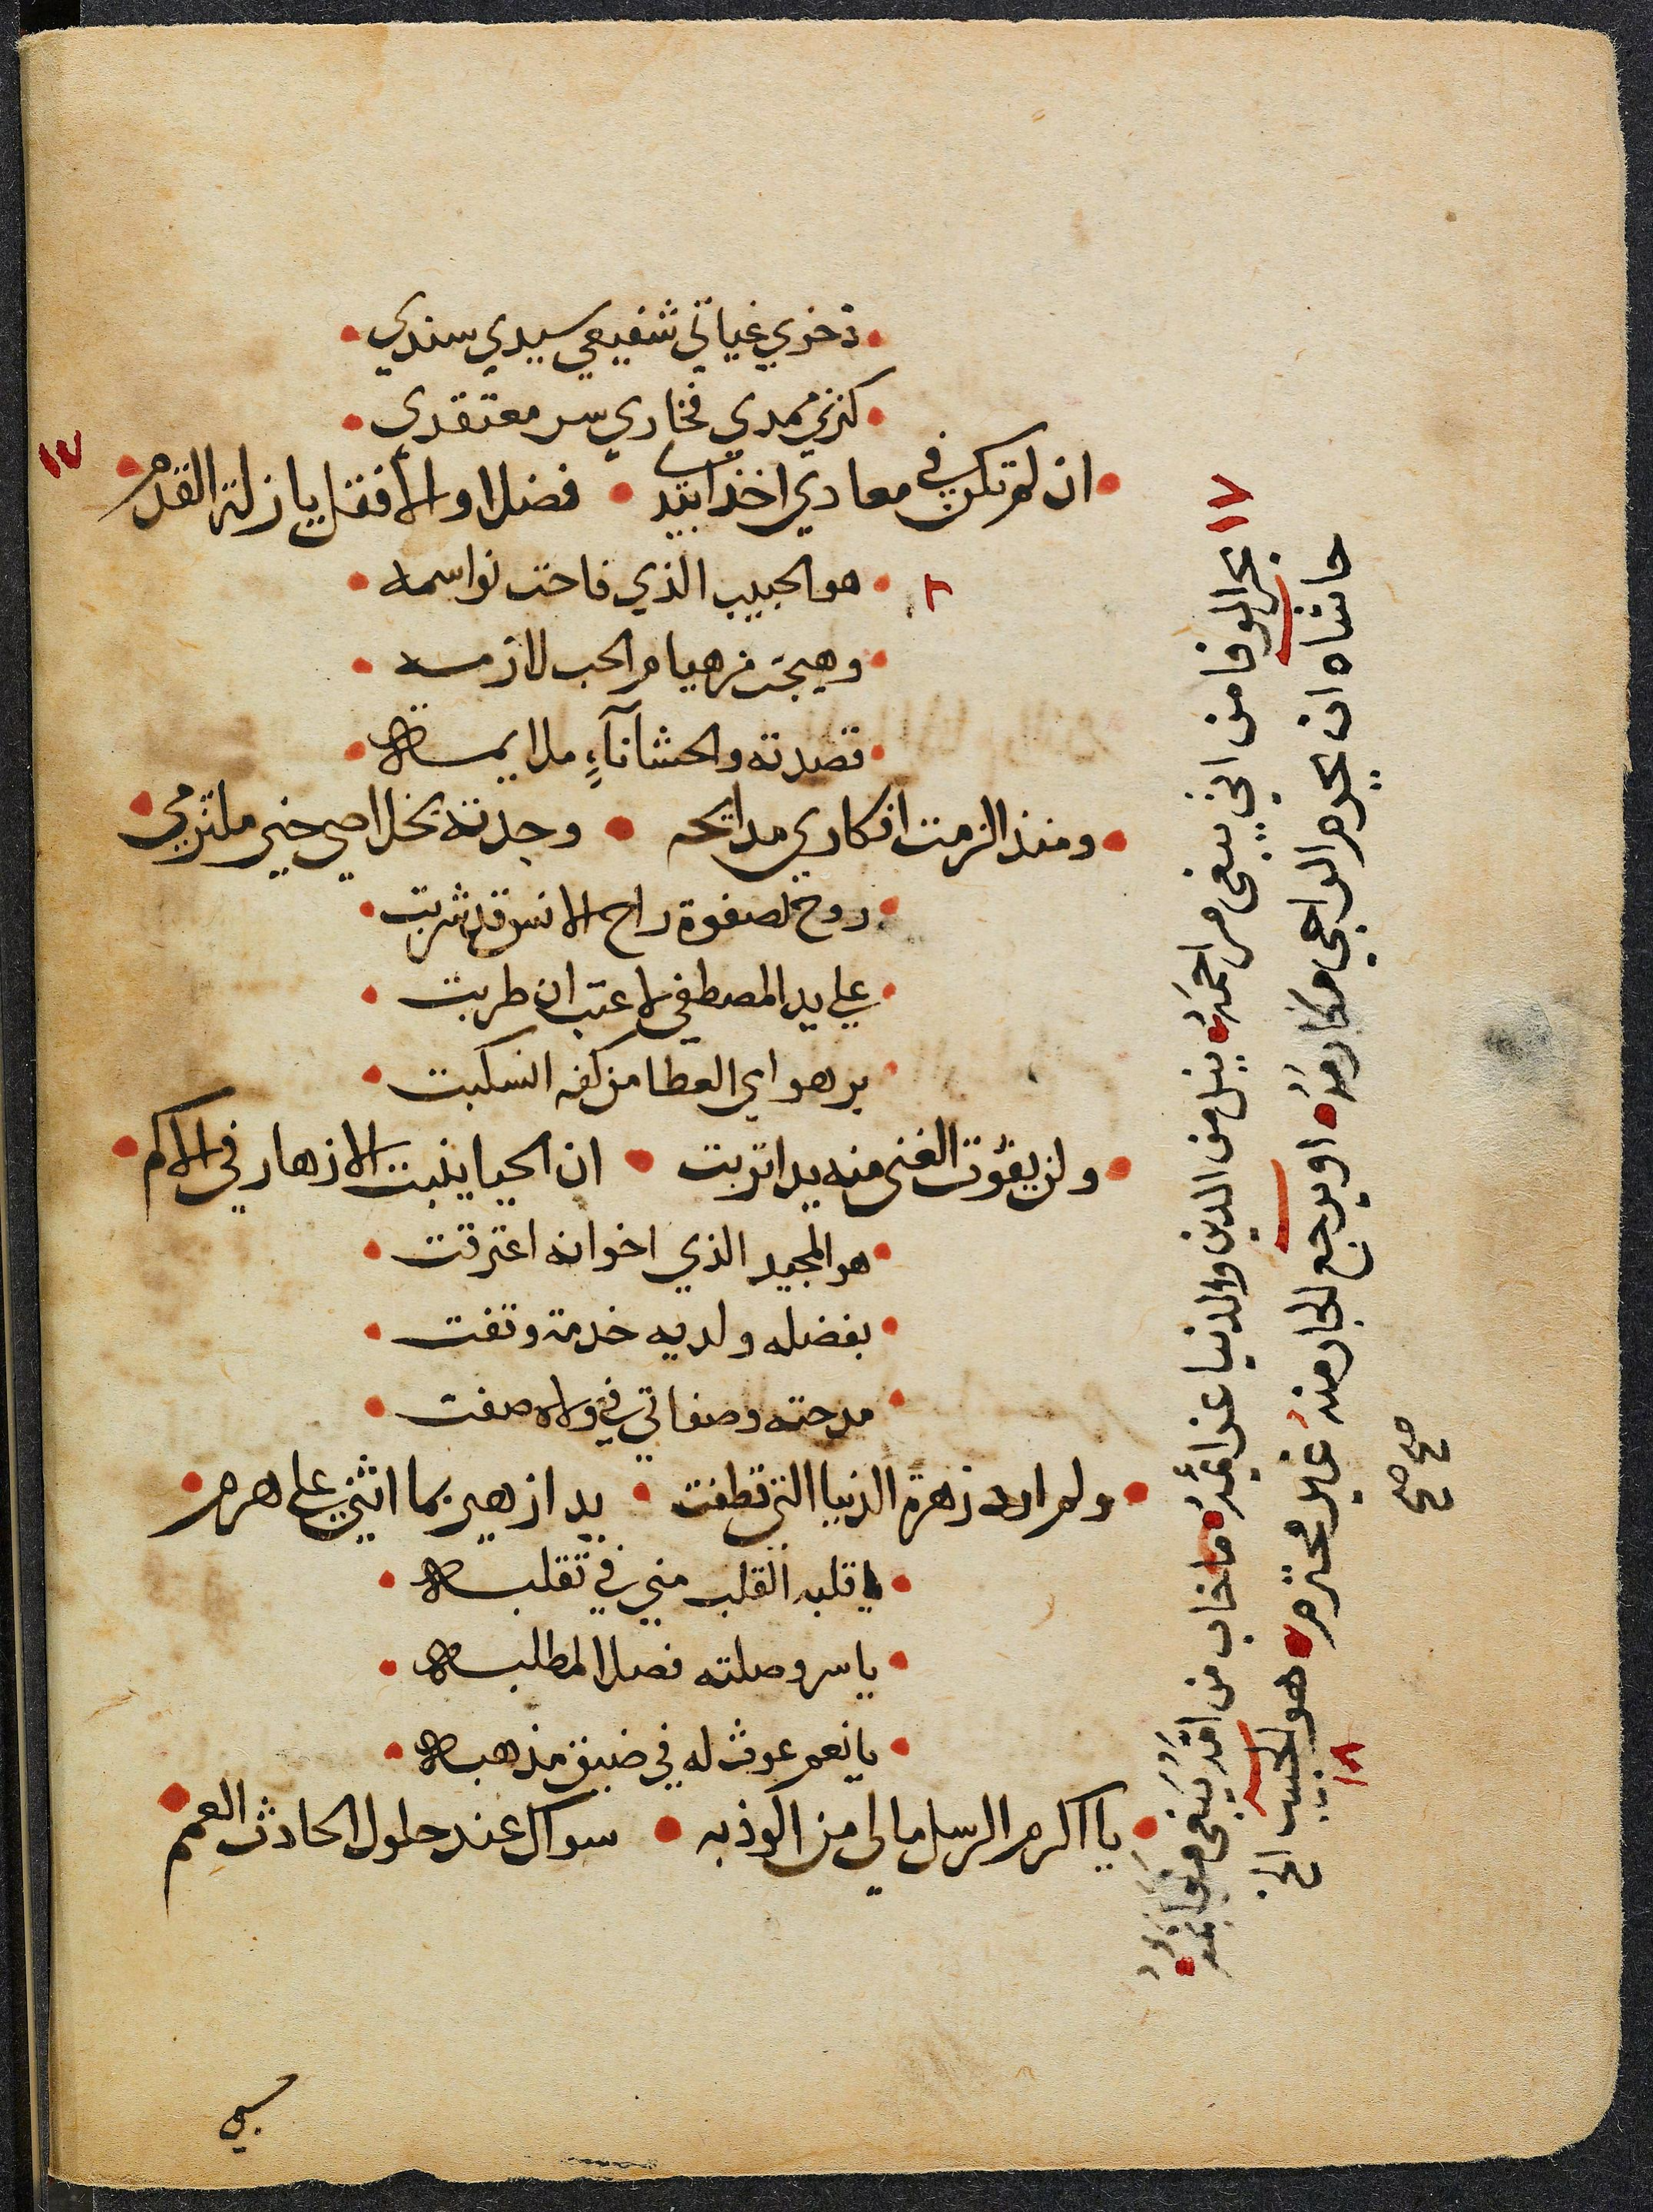 ذخري غياثي شفيعي سيدي سندي
كنزي ممدي فخاري سر معتقدي
ان لم تكن في معادي اخذا بيدي • فضلا والا فقل يا زلة القدم
١٧
هو الحبيب الذي فاحت نواسمه
وهيجت من هيام الحب لازمه
قصدته والحشا ناء ملايمه
ومنذ الزمت افكاري مدائحه • وجدته لخلاصي خير ملتزمي
روح لصفوة راح الانس قد شربت
على يد المصطفى لا عتب ان طربت
بر هوامي العطا من كفه انسكبت
ولن يفوت الغنى منه يدا تربت • ان الحيا ينبت الازهار في الاكم
هو المجيد الذي اخوانه اعترفت
بفضله ولديه خدمة وقفت
مدحته وصفاتي في ولاه صفت
ولم ارد زهرة الدنيا التي قطفت • يدا زهير بما اثنى على هرم
يا قلبه القلب مني في تقلبه
يا سر وصلته فصلا لمطلبه
يا نعم غوث له في ضيق مذهبه
يا اكرم الرسل مالي من الوذ به • سواك عند حلول الحادث العمم
١٧
بحر الوفا من اتي يبغي مراحمه • ينل من الدين والدنيا غنائمه • ما خاب من امه يبغي
حاشاه ان يحرم الراجي مكارمه • او يرجع الجار منه غير محترم • هو الحبيب الخ
١٨
صح صح